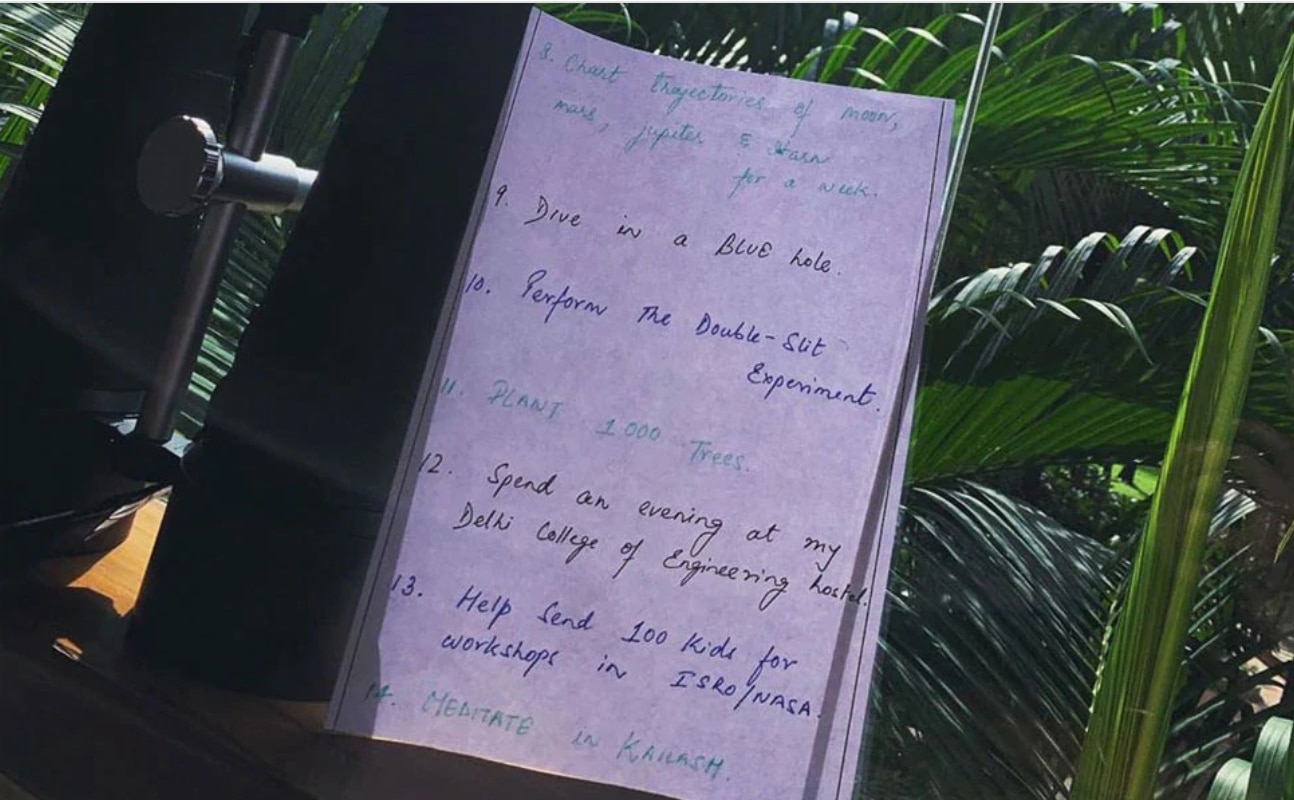 8. Chart trajectories of moon,
mars, jupiter & Saturn
for a week.
9. Dive in a BLUE hole.
10. Perform The Double-Slit
Experiment.
11. PLANT 1000 Trees.
12. Spend an evening at my
Delhi College of Engineering hostel.
13. Help Send 100 Kids for
workshops in ISRO/NASA.
14. MEDITATE in KAILASH.